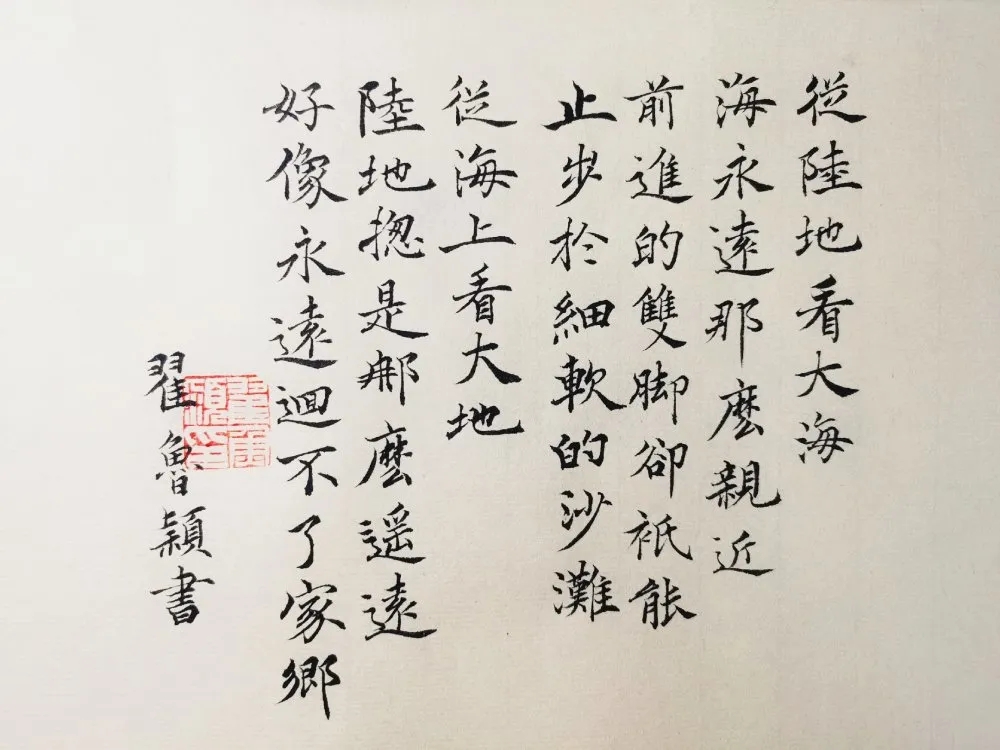 從陸地看大海
海永遠那麽親近
前進的雙脚卻祇能
止步於細軟的沙灘
從海上看大地
陸地揔是那麽遥遠
好像永遠迴不了家鄉
翟魯穎書